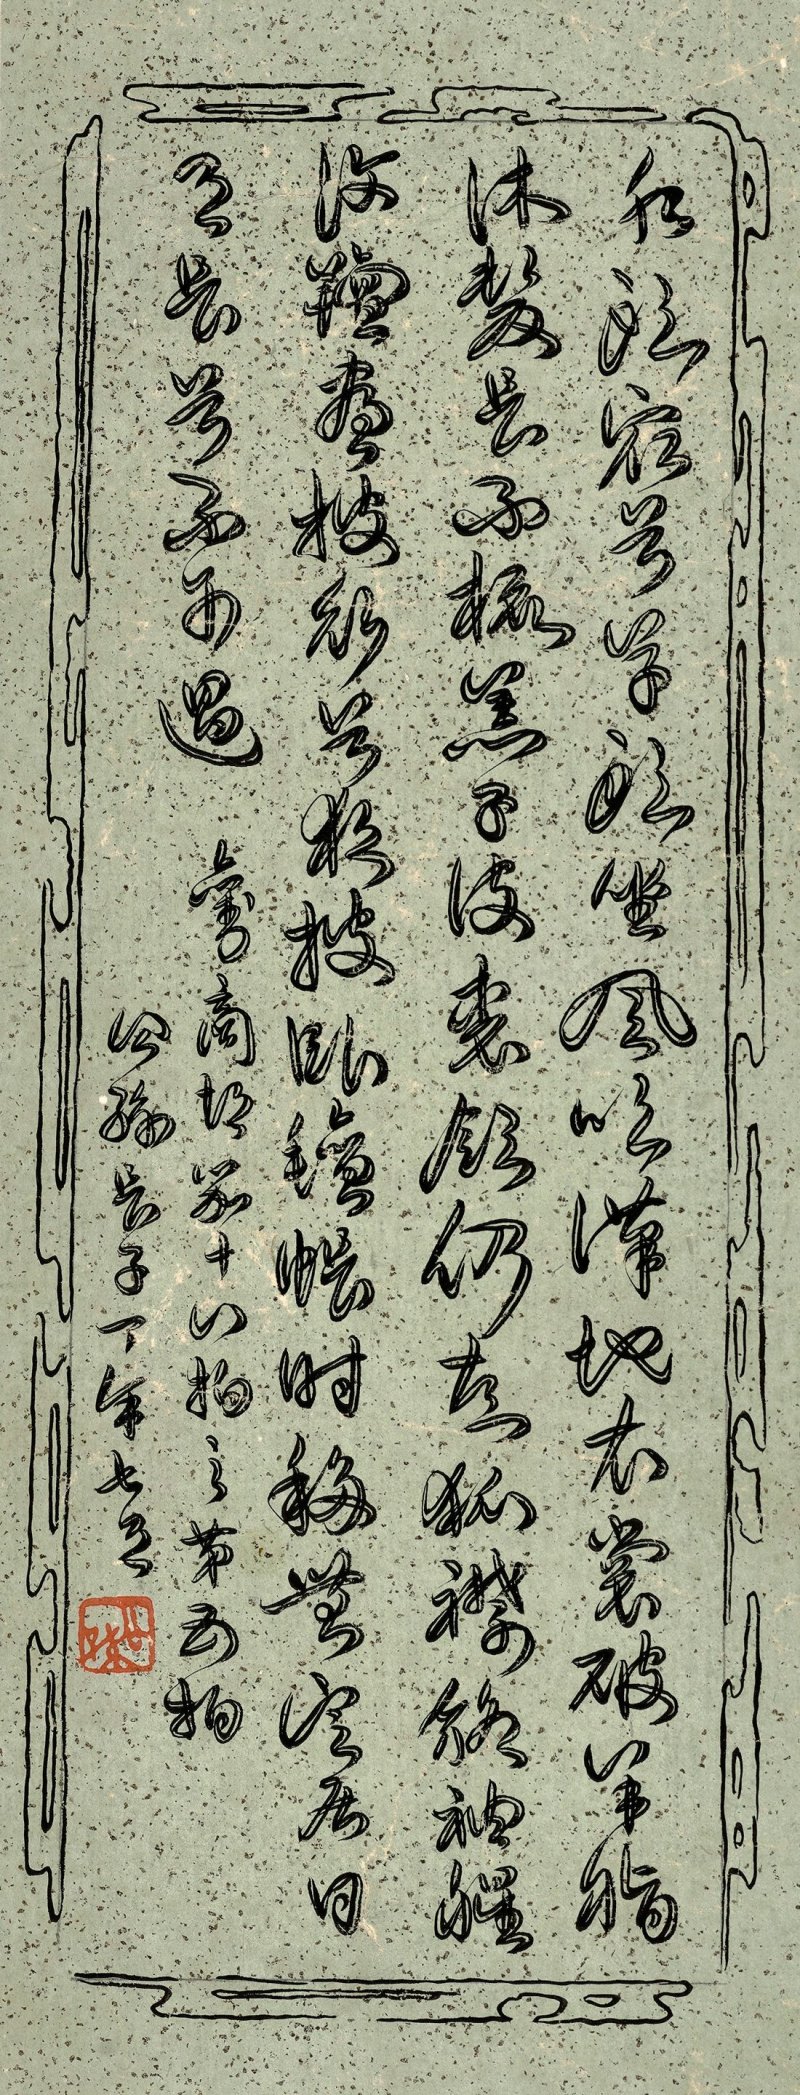 水頭宿兮草頭坐風吹漢地衣裳破羊脂
沐髮長不梳羔子皮裘領仍左狐襟貉袖腥
復羶晝披行兮夜披臥氈帳時移無定居日
月長兮不可過 劉商胡笳十八拍之第五拍
公孫長子丁年七月